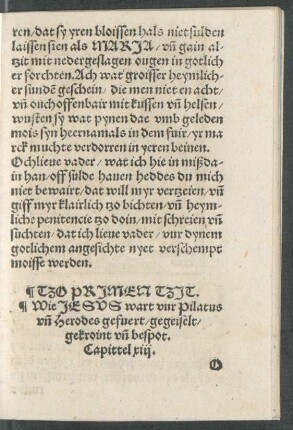 ren/dat sy yren bloissen hals niet sulden
laissen sien als MARIA/vn̄ gain al-
tzit mit nedergeslagen ougen in gotlich
er forchten. Ach wat groisser heymlich-
er sundē geschein/die men niet en acht/
vn̄ ouch offenbair mit kussen vn̄ helsen/
wusten sy wat pynen dae vmb geleden
mois syn heernamals in dem fuir/yr ma
rck muchte verdorren in yeren beinen.
Och lieue vader/wat ich hie in mißda-
in han/off sulde hauen heddes du mich
niet bewairt/dat will myr vertzeien/vn̄
giff myr klairlich tzo bichten/vn̄ heym-
liche penitencie tzo doin/mit schreien vn̄
suchten/dat ich lieue vader/vur dynem
gotlichem angesichte nyet verschempt
moisse werden.
¶ TZO PRIMEN TZIT.
¶ Wie JESVS wart vur Pilatus
vn̄ Herodes gefuert/gegeiselt/
gekroint vn̄ bespot.
Capittel xiij.
O